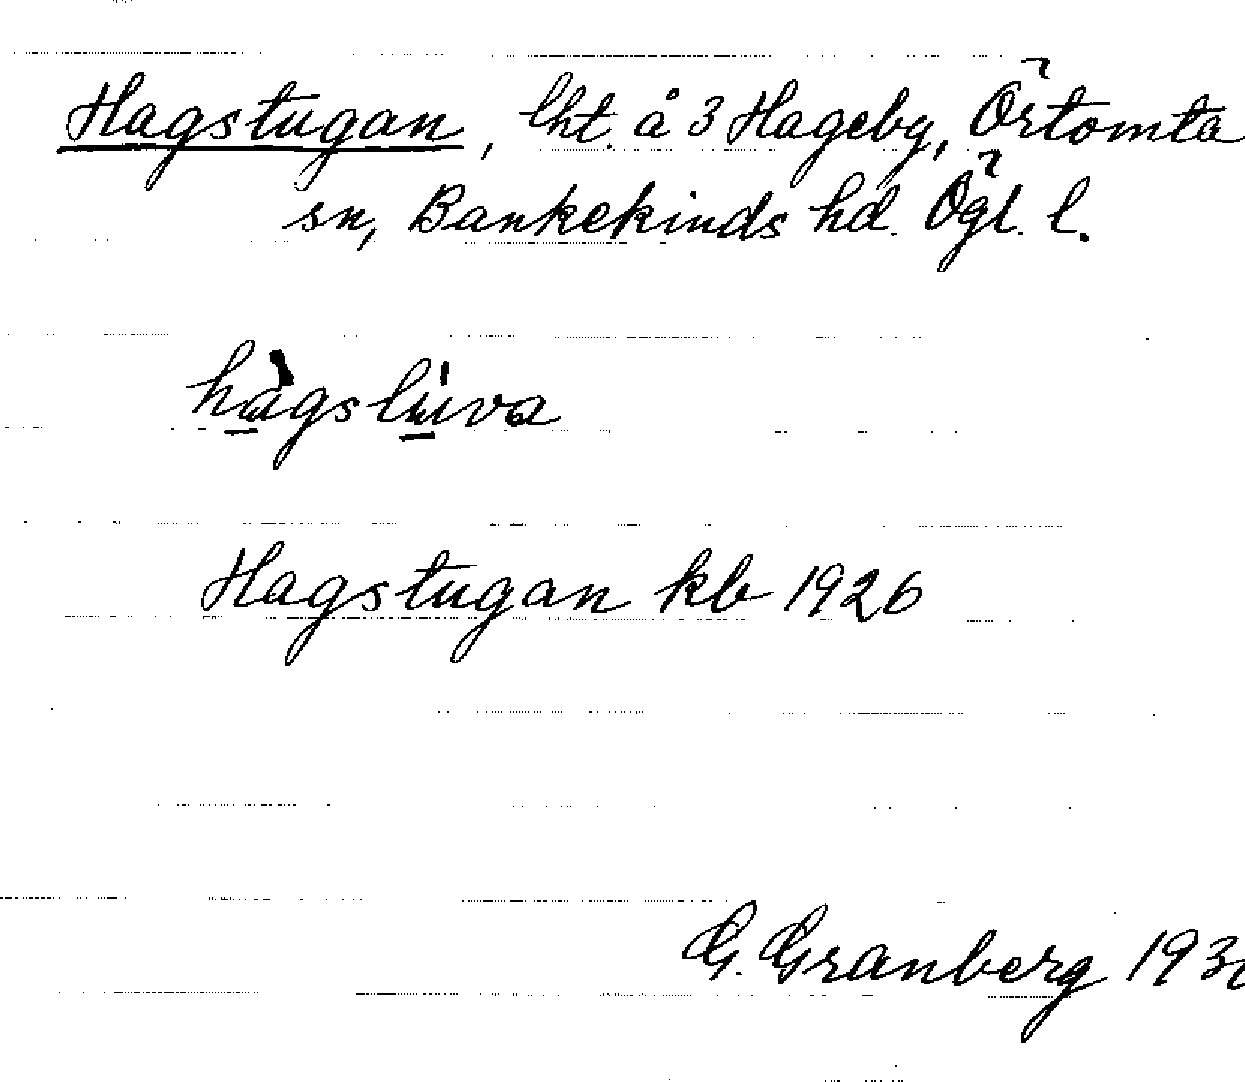 Hagstugan, lht. å 3 Hageby, Örtomta
sn, Bankekinds hd. Ögl. l.
hàgslúva
Hagstugan kb 1926
G. Granberg